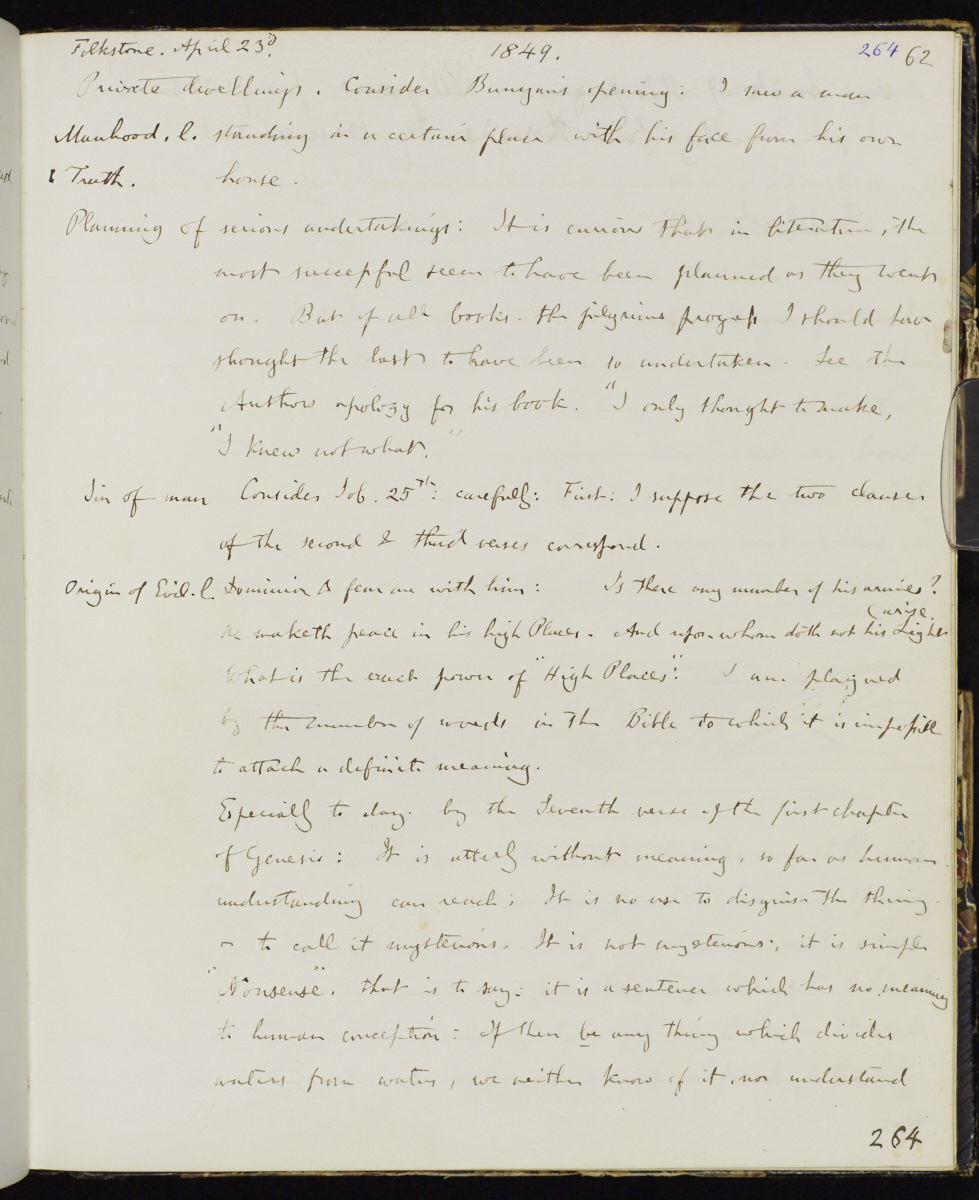 Folkstone. April 23d. 1849. 264 62
Private dwellings. Consider Bunyans opening: I saw a man
Manhood. l. standing in a certain place with his face from his own
Truth. house.
Planning of serious undertakings: It is curious that in literature, the
most succesful seem to have been planned as they went
on. But of all books. the pilgrims progess I should have
thought the last to have been so undertaken. See the
Authors apology for his book. "I only thought to make,
"I knew not what."
Sin of man Consider Job. 25th: carefully: First: I suppose the two clauses
of the second & third verses correspond.
Origin of Evil. l. Dominion & fear are with him: Is there any number of his armies?
(arise.
He maketh peace in his high Places. And upon whom doth not his Light
What is the exact power of "High Places": I am plagued
by the number of words in the Bible to which it is impossible
to attach a definite meaning.
Especially to day. by the Seventh verse of the first chapter
of Genesis: It is utterly without meaning, so far as human
understanding can reach: It is no use to disguise the thing
or to call it mysterious. It is not mysterious:, it is simple
"Nonsense". that is to say: it is a sentence which has no meaning
to human conception: If there be any thing which divides
waters from waters, we neither know of it. nor understand
264